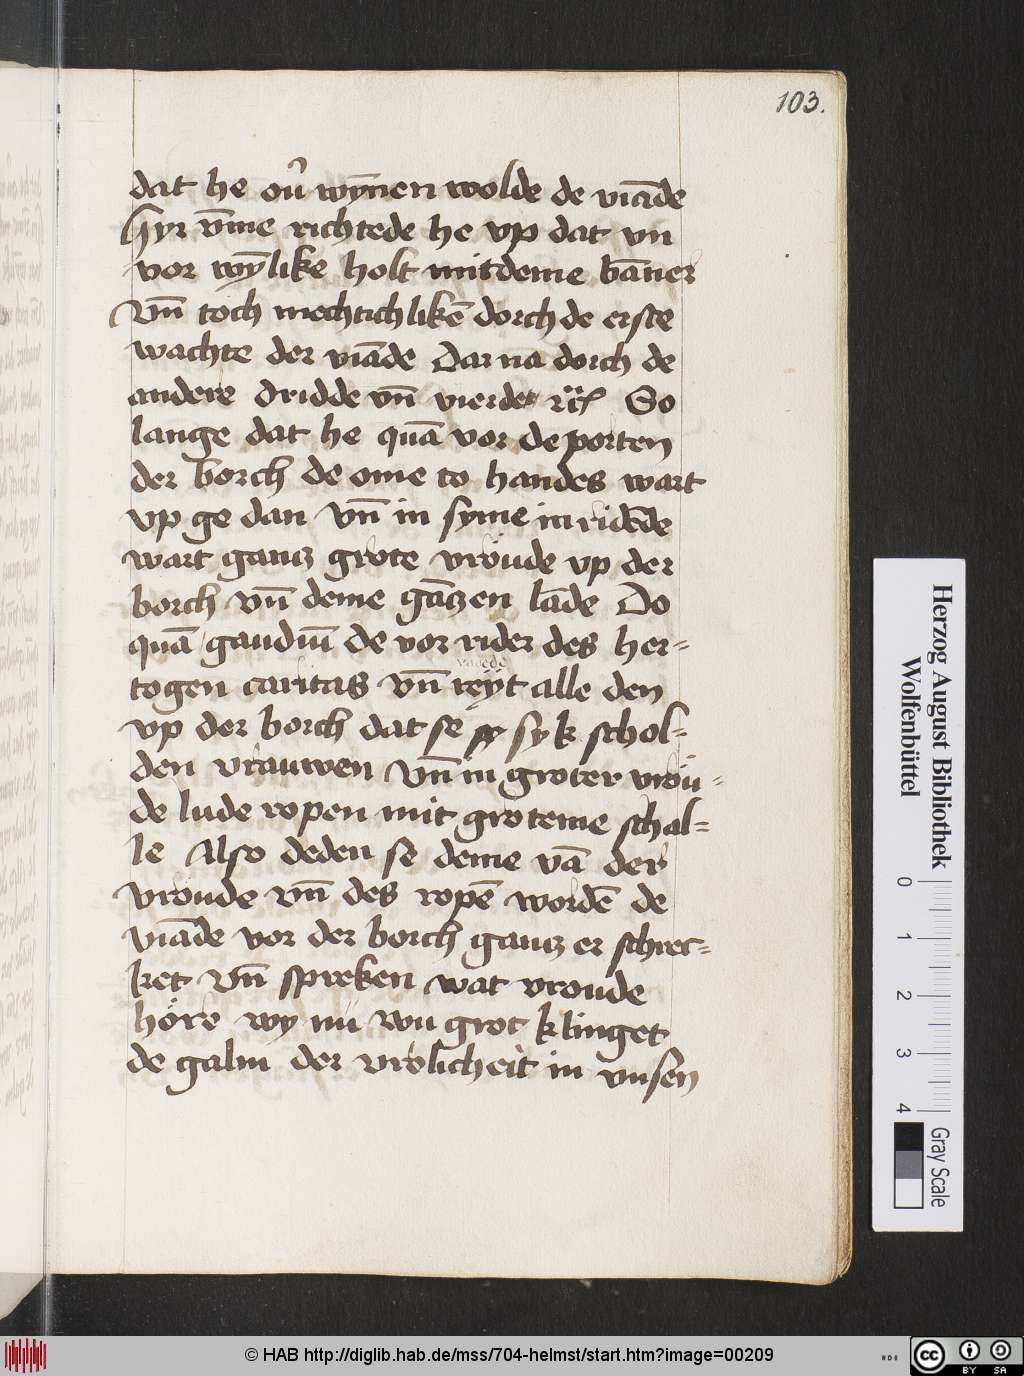 103.
dat he ou᷒ wȳnen wolde de viāde
Hyr v̄me richtede he vp dat vn
vor wȳlike holt mitdeme bāner
Vn̄ toch mechtichlikē dorch de erste
wachte der viāde Dar nā dorch de
andere dridde vn̄ vierde So
lange dat he quā vor de porten
der borch de ome to handes wart
vp ge dan Vn̄ in syme in ridēde
wart gancz grote vröude vp der
borch vn̄ deme gāczen lāde Do
quā gaudiū de vor rider des her=
togen caritas Vn̄ reÿt alle den
vp der borch dat se syk schol=
den vrauwen Vn̄ in groter vröu=
de lude ropen mit groteme schal=
le Also deden se deme vā der
vröude vn̄ des ropē wordē de
viāde vor der borch gancz er schrec=
ket Vn̄ spreken wat vroude
höre wy nu wu grot klinget
de galm der vrolicheit in vnsen
Herzog August Bibliothek
Wolfenbüttel
0 1 2 3 4
Gray Scale
© HAB http://diglib.hab.de/mss/704-helmst/start.htm?image=00209
cc BY SA